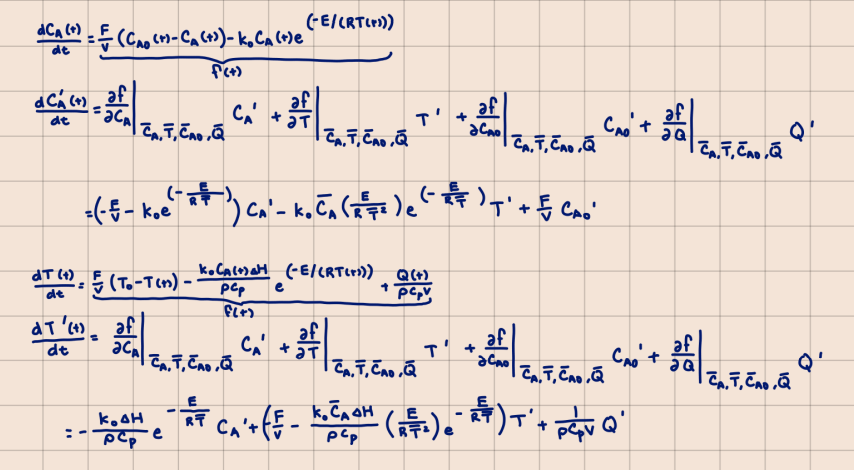 dC_A(t)/dt = F/V (C_A0(t) - C_A(t)) - k₀C_A(t)e^(-E/(RT(t)))
f(t)
dC_A'(t)/dt = ∂f/∂C_A |_(C̄_A, T̄, C̄_A0, Q̄) C_A' + ∂f/∂T |_(C̄_A, T̄, C̄_A0, Q̄) T' + ∂f/∂C_A0 |_(C̄_A, T̄, C̄_A0, Q̄) C_A0' + ∂f/∂Q |_(C̄_A, T̄, C̄_A0, Q̄) Q'
= (-F/V - k₀e^(-E/(RT̄))) C_A' - k₀C̄_A (E/(RT̄²)) e^(-E/(RT̄)) T' + F/V C_A0'
dT(t)/dt = F/V (T₀ - T(t)) - k₀C_A(t)ΔH/(ρC_p) e^(-E/(RT(t))) + Q(t)/(ρC_pV)
f(t)
dT'(t)/dt = ∂f/∂C_A |_(C̄_A, T̄, C̄_A0, Q̄) C_A' + ∂f/∂T |_(C̄_A, T̄, C̄_A0, Q̄) T' + ∂f/∂C_A0 |_(C̄_A, T̄, C̄_A0, Q̄) C_A0' + ∂f/∂Q |_(C̄_A, T̄, C̄_A0, Q̄) Q'
= - k₀ΔH/(ρC_p) e^(-E/(RT̄)) C_A' + (F/V - k₀C̄_AΔH/(ρC_p) (E/(RT̄²)) e^(-E/(RT̄))) T' + 1/(ρC_pV) Q'